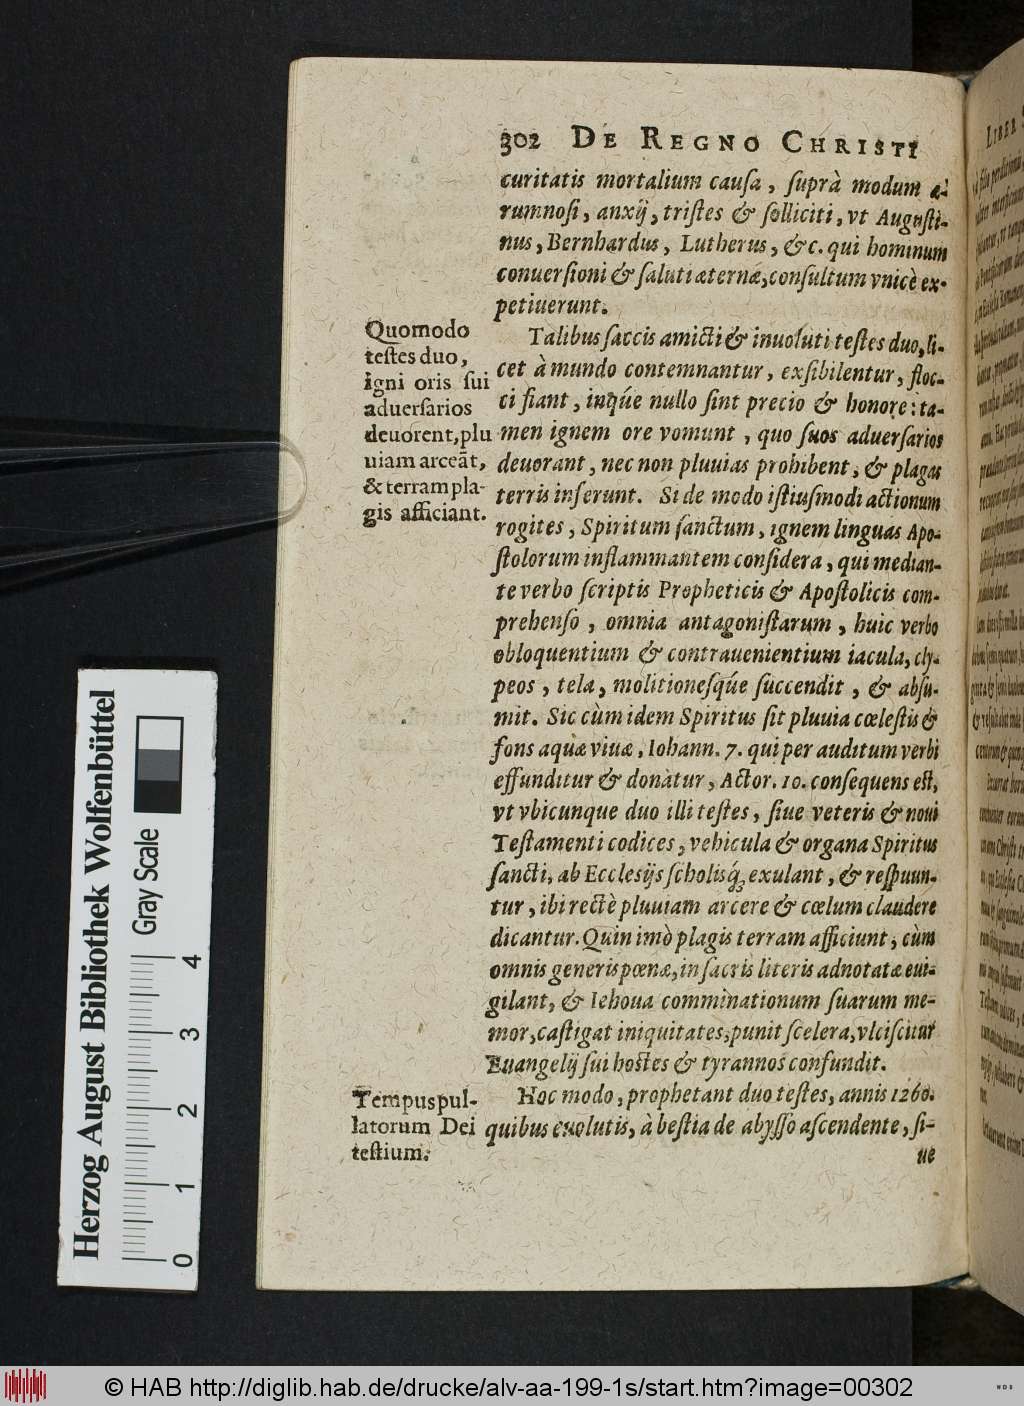 302 DE REGNO CHRISTI
curitatis mortalium cauſa, ſuprà modum æ-
rumnoſi, anxij, triſtes & ſolliciti, vt Auguſti-
nus, Bernhardus, Lutherus, &c. qui hominum
conuerſioni & ſaluti æternæ, conſultum vnicè ex-
petiuerunt.
Quomodo
teſtes duo,
igni oris ſui
aduerſarios
deuorent, plu
uiam arceāt,
& terram pla-
gis afficiant.
Talibus ſaccis amicti & inuoluti teſtes duo, li-
cet à mundo contemnantur, exſibilentur, floc-
ci fiant, inq́ue nullo ſint precio & honore: ta-
men ignem ore vomunt, quo ſuos aduerſarios
deuorant, nec non pluuias prohibent, & plagas
terris inſerunt. Si de modo iſtiuſmodi actionum
rogites, Spiritum ſanctum, ignem linguas Apo-
ſtolorum inflammantem conſidera, qui median-
te verbo ſcriptis Propheticis & Apoſtolicis com-
prehenſo, omnia antagoniſtarum, huic verbo
obloquentium & contrauenientium iacula, cly-
peos, tela, molitioneſq́ue ſuccendit, & abſu-
mit. Sic cùm idem Spiritus ſit pluuia cœleſtis &
fons aquæ viuæ, Iohann. 7. qui per auditum verbi
effunditur & donatur, Actor. 10. conſequens eſt,
vt vbicunque duo illi teſtes, ſiue veteris & noui
Teſtamenti codices, vehicula & organa Spiritus
ſancti, ab Eccleſijs ſcholisq́; exulant, & reſpuun-
tur, ibi rectè pluuiam arcere & cœlum claudere
dicantur. Quin imò plagis terram afficiunt, cùm
omnis generis pœnæ, in ſacris literis adnotatæ eui-
gilant, & Iehoua comminationum ſuarum me-
mor, caſtigat iniquitates, punit ſcelera, vlciſcitur
Euangelij ſui hoſtes & tyrannos confundit.
Tempus pul-
latorum Dei
teſtium.
Hoc modo, prophetant duo teſtes, annis 1260.
quibus euolutis, à beſtia de abyſſo aſcendente, ſi-
ue
Herzog August Bibliothek Wolfenbüttel
Gray Scale
0 1 2 3 4
© HAB http://diglib.hab.de/drucke/alv-aa-199-1s/start.htm?image=00302